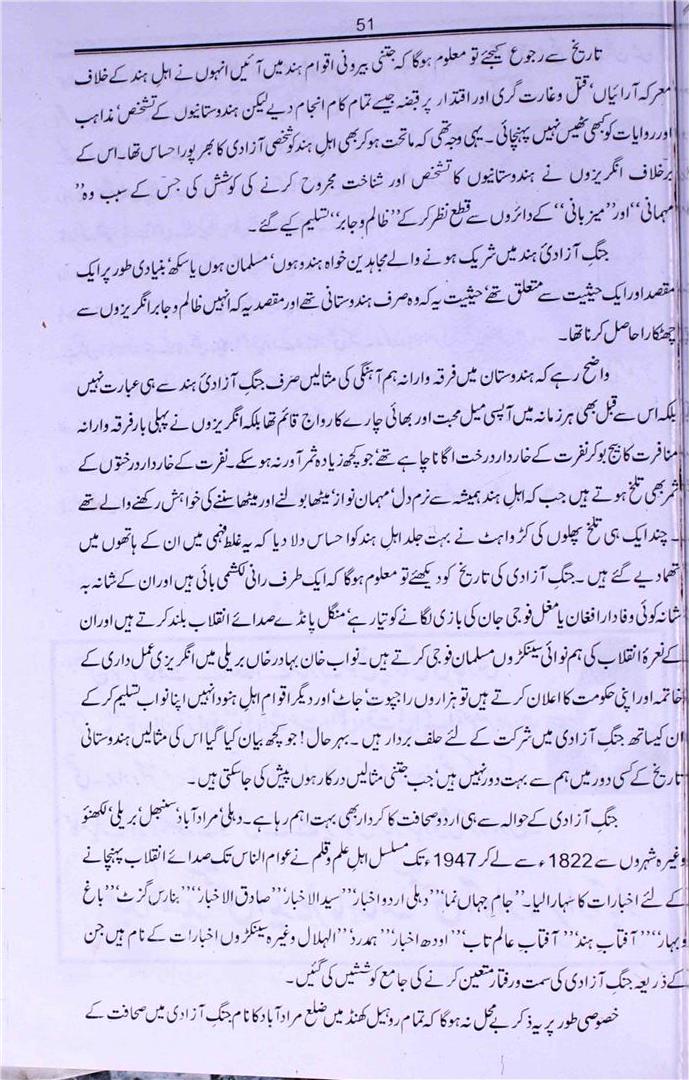 51
تاریخ سے رجوع کیجئے تو معلوم ہوگا کہ جتنی بیرونی اقوام ہند میں آئیں انہوں نے اہلِ ہند کے خلاف
معرکہ آرائیاں‘ قتل و غارت گری اور اقتدار پر قبضہ جیسے تمام کام انجام دیے لیکن ہندوستانیوں کے تشخص‘ مذاہب
اور روایات کو کبھی ٹھیس نہیں پہنچائی ۔ یہی وجہ تھی کہ ماتحت ہوکر بھی اہلِ ہند کو شخصی آزادی کا بھرپور احساس تھا۔ اس کے
برخلاف انگریزوں نے ہندوستانیوں کا تشخص اور شناخت مجروح کرنے کی کوشش کی جس کے سبب وہ ’’
مہمانی‘‘ اور ’’میزبانی‘‘ کے دائروں سے قطع نظر کرکے ’’ظالم و جابر‘‘ تسلیم کیے گئے۔
جنگِ آزادیٔ ہند میں شریک ہونے والے مجاہدین خواہ ہندو ہوں‘ مسلمان ہوں یا سکھ‘ بنیادی طور پر ایک
مقصد اور ایک حیثیت سے متعلق تھے‘ حیثیت یہ کہ وہ صرف ہندوستانی تھے اور مقصد یہ کہ انہیں ظالم و جابر انگریزوں سے
چھٹکارا حاصل کرنا تھا۔
واضح رہے کہ ہندوستان میں فرقہ وارانہ ہم آہنگی کی مثالیں صرف جنگِ آزادیٔ ہند سے ہی عبارت نہیں
بلکہ اس سے قبل بھی ہر زمانہ میں آپسی میل محبت اور بھائی چارے کا رواج قائم تھا بلکہ انگریزوں نے پہلی بار فرقہ وارانہ
منافرت کا بیج بو کر نفرت کے خاردار درخت اگانا چاہے تھے‘ جو کچھ زیادہ ثمر آور نہ ہوسکے۔ نفرت کے خاردار درختوں کے
ثمر بھی تلخ ہوتے ہیں جب کہ اہلِ ہند ہمیشہ سے نرم دل‘ مہمان نواز‘ میٹھا بولنے اور میٹھا سننے کی خواہش رکھنے والے تھے
۔ چند ایک ہی تلخ پھلوں کی کڑواہٹ نے بہت جلد اہلِ ہند کو احساس دلا دیا کہ یہ غلط فہمی میں ان کے ہاتھوں میں
تھما دیے گئے ہیں ۔ جنگِ آزادی کی تاریخ کو دیکھئے تو معلوم ہوگا کہ ایک طرف رانی لکشمی بائی ہیں اور ان کے شانہ بہ
شانہ کوئی وفادار افغان یا مغل فوجی جان کی بازی لگانے کو تیار ہے‘ منگل پانڈے صدائے انقلاب بلند کرتے ہیں اور ان
کے نعرۂ انقلاب کی ہم نوائی سینکڑوں مسلمان فوجی کرتے ہیں۔ نواب خان بہادر خاں بریلی میں انگریزی عمل داری کے
خاتمہ اور اپنی حکومت کا اعلان کرتے ہیں تو ہزاروں راجپوت‘ جاٹ‘ اور دیگر اقوام اہلِ ہنود انہیں اپنا نواب تسلیم کرکے
ان کیساتھ جنگِ آزادی میں شرکت کے لئے حلف بردار ہیں ۔ بہر حال ! جو کچھ بیان کیا گیا اس کی مثالیں ہندوستانی
تاریخ کے کسی دور میں ہم سے بہت دور نہیں ہیں‘ جب جتنی مثالیں درکار ہوں پیش کی جاسکتی ہیں۔
جنگِ آزادی کے حوالہ سے ہی اردو صحافت کا کردار بھی بہت اہم رہا ہے۔ دہلی‘ مرادآباد‘ سنبھل‘ بریلی‘ لکھنؤ
وغیرہ شہروں سے 1822ء سے لے کر 1947ء تک مسلسل اہلِ علم و قلم نے عوام الناس تک صدائے انقلاب پہنچانے
کے لئے اخبارات کا سہارا لیا۔ ’’جامِ جہاں نما‘‘ دہلی اردو اخبار‘‘ سید الاخبار‘‘ صادق الاخبار‘‘ ’’بنارس گزٹ‘‘ ’’باغ
و بہار‘‘ ’’آفتابِ ہند‘‘ آفتابِ عالم تاب‘‘ ’’اودھ اخبار‘‘ ہمدرد‘‘ ’’الہلال وغیرہ سینکڑوں اخبارات کے نام ہیں جن
کے ذریعہ جنگِ آزادی کی سمت و رفتار متعین کرنے کی جامع کوششیں کی گئیں۔
خصوصی طور پر یہ ذکر بے محل نہ ہوگا کہ تمام روہیل کھنڈ میں ضلع مرادآباد کا نام جنگِ آزادی میں صحافت کے